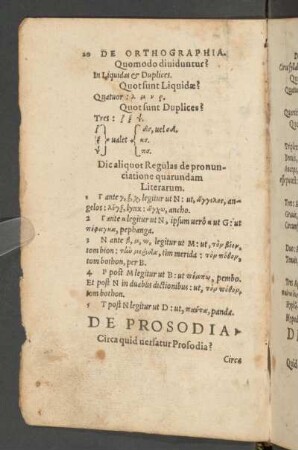 20 DE ORTHOGRAPHIA.
Quomodo diuiduntur?
In Liquidas & Duplices.
Quot sunt Liquidæ?
Quatuor: λ μ ν ρ.
Quot sunt Duplices?
Tres: ζ ξ ψ.
ζ } { ds, uel sd.
ξ } ualet { κσ.
ψ } { πσ.
Dic aliquot Regulas de pronun-
ciatione quarundam
Literarum.
1 Γ ante γ, ξ, χ, legitur ut N: ut, ἄγγελος, an-
gelos: λὺγξ, lynx: ἄγχω, ancho.
2 Γ ante κ legitur ut N, ipsum uerò κ ut G: ut
πέφαγκα, pephanga.
3 N ante β, μ, π, legitur ut M: ut, τὸν βίον,
tom bion: τὴν μερίδα, tim merida: τὸν πόθον,
tom bothon, per B.
4 P post M legitur ut B: ut πέμπω, pembo.
Et post N in duabus dictionibus: ut, τὸν πόθον,
tom bothon.
5 T post N legitur ut D: ut, πάντα, panda.
DE PROSODIA.
Circa quid uersatur Prosodia?
Circa